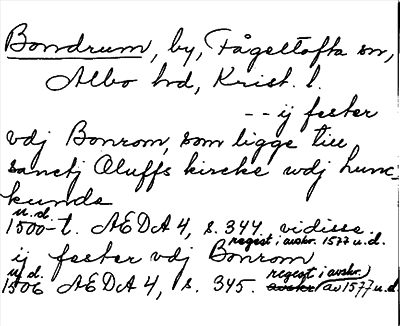 Bondrum, by, Fågeltofta sn,
Albo hd, Krist. l.
-- ij fester
vdj Bonrom, som ligge till
sanctj Oluffs kircke wdj hunc-
kunde
u.d.
1500-t. AEDA 4, s. 344. vidisse.
regest i avskr. 1577 u.d.
ij fester vdj Bonrom
u.d. regest i avskr.
1506 AEDA 4, s. 345. avskr (av 1577 u.d.